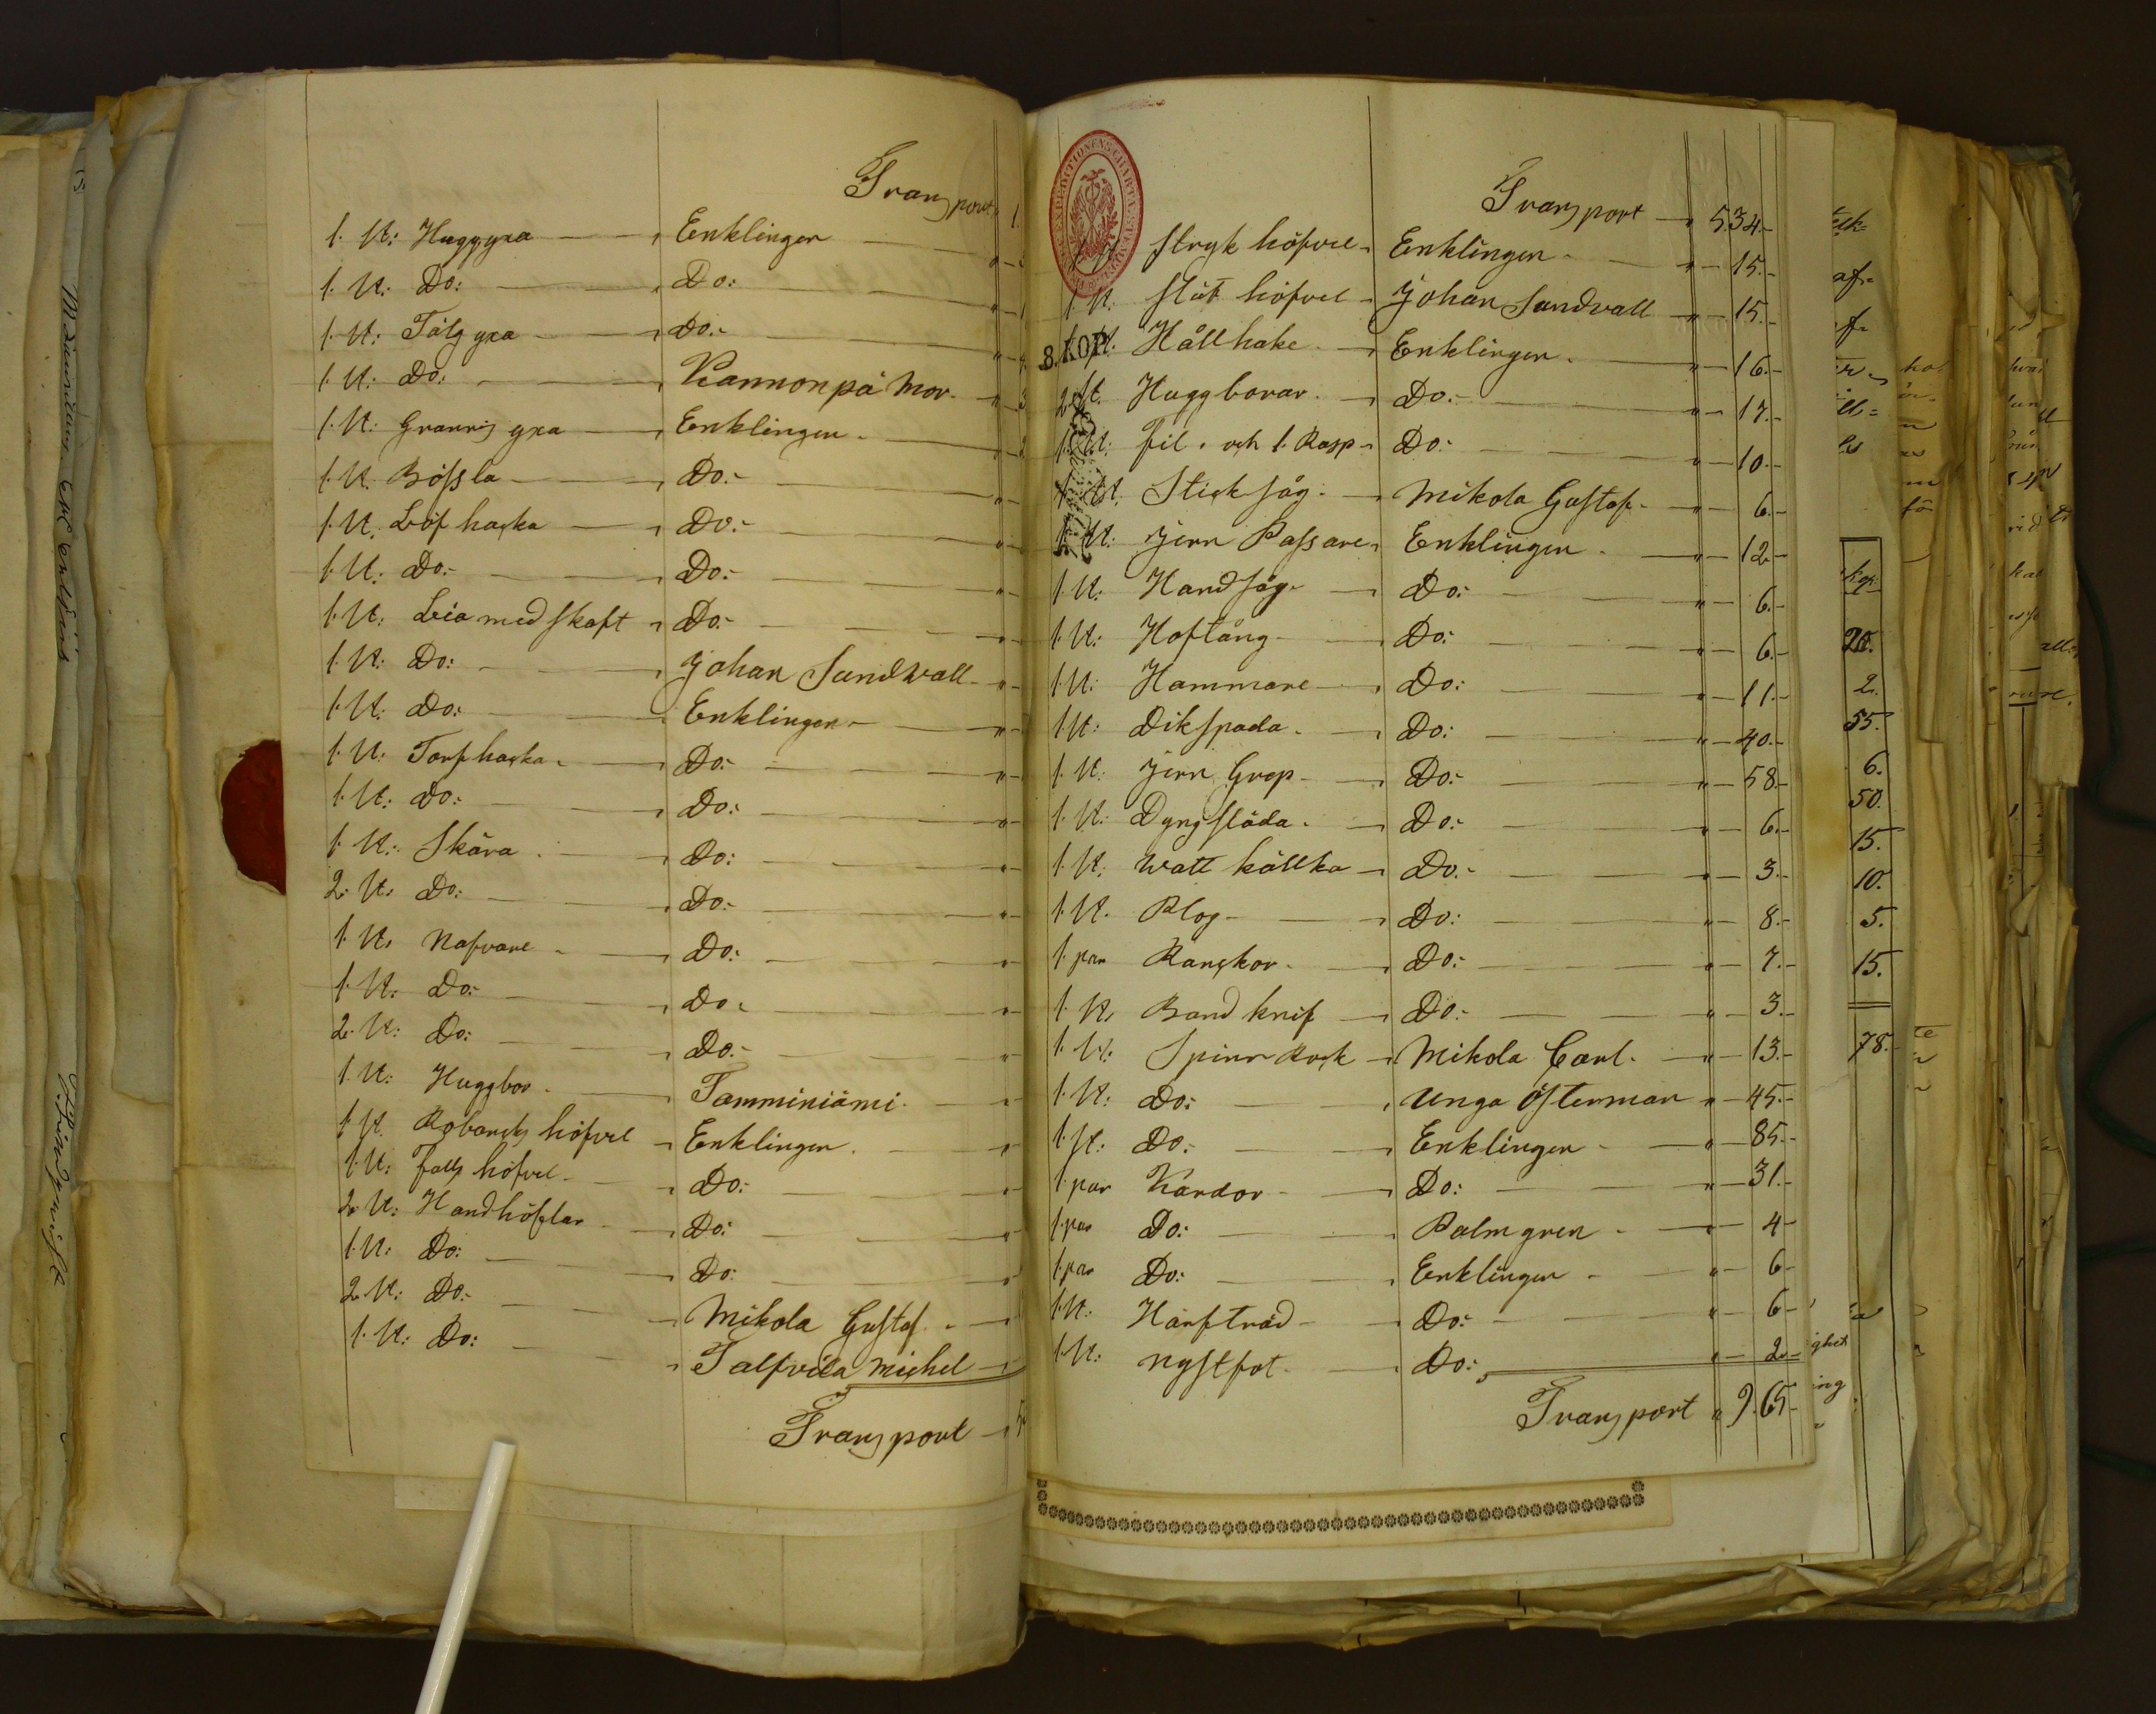 Transport
1. st: Huggyxa Enklingen
1. st: Do: Do:
1. st: Tälgyxa Do:
1. st: Do: Kannonpä Mor.
1. st: Granris yxa Enklingen
1. st. Bössla Do:
1. st. Löf hacka Do:
1. st: Do: Do:
1. st: Lia med skaft Do:
1. st: Do: Johan Sandwall
1. st: Do: Enklingen
1. st: Torfhacka Do:
1. st: Do: Do:
1. st: Skära Do:
2. st. Do: Do:
1. st. Nafvare Do:
1. st: Do: Do:
2. st: Do: Do:
1. st: Huggbor Tamminiämi
1. st. höfvel Enklingen
1. st: Falls höfvel Do:
2. st: Handhöflar Do:
1. st: Do: Do:
2. st: Do: Mikola Gustaf
1. st: Do: Salfvila Michel
Transport
Transport 5.34.
Stryk höfvel Enklingen 15.
1. st. Slät höfvel Johan Sandvall 15.
8. KOP.
Hållhake Enklingen 16.
2 st. Huggborar Do: 17.
1. st: fil. och 1. Rasp Do: 10.
1. st. Sticksåg Mikola Gustaf 6.
1. st: Jern Passare Enklingen 12
1. st: Handsåg Do: 6.
1. st: Hoftång Do: 6.
1. st: Hammare Do: 11.
1. st: Dikspada Do: 40.
1. st: Jern Grep Do: 58.
1. st: Dyngsläda Do: 6.
1. st. Watt källka Do: 3.
1. st. Plog Do: 8.
1. par Ranckor Do: 7.
1. st. Band knif Do: 3.
1. st: Spinn Rock Mikola Carl 13.
1. st: Do: Unga Österman 45.
1. st: Do: Enklingen 85.
1. par Kardor Do: 31.
1. par Do: Palmgren 4
1. par Do: Enklingen 6
1. st: Harfträd Do: 6
1. st: Nystfot Do: 2
Transport 9.65
kop.
20.
2.
55.
6.
50.
15.
10.
5.
15.
78.